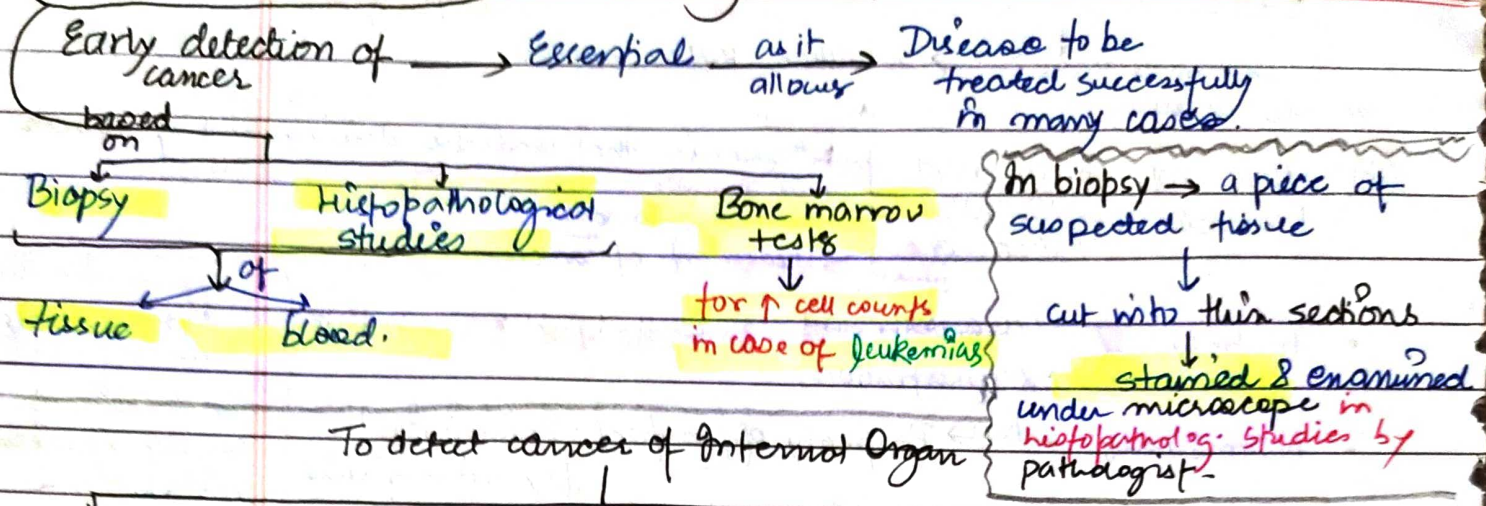 Early detection of cancer → Essential as it allows → Disease to be
treated successfully
in many cases.
based
on
Biopsy
Histopathological
studies
Bone marrow
tests
of
tissue
blood.
for ↑ cell counts
in case of leukemias
In biopsy → a piece of
suspected tissue
↓
cut into thin sections
↓
stained & enamined
under microscope in
histopatholog. studies by
pathologist-
To detect cancer of Internal Organ